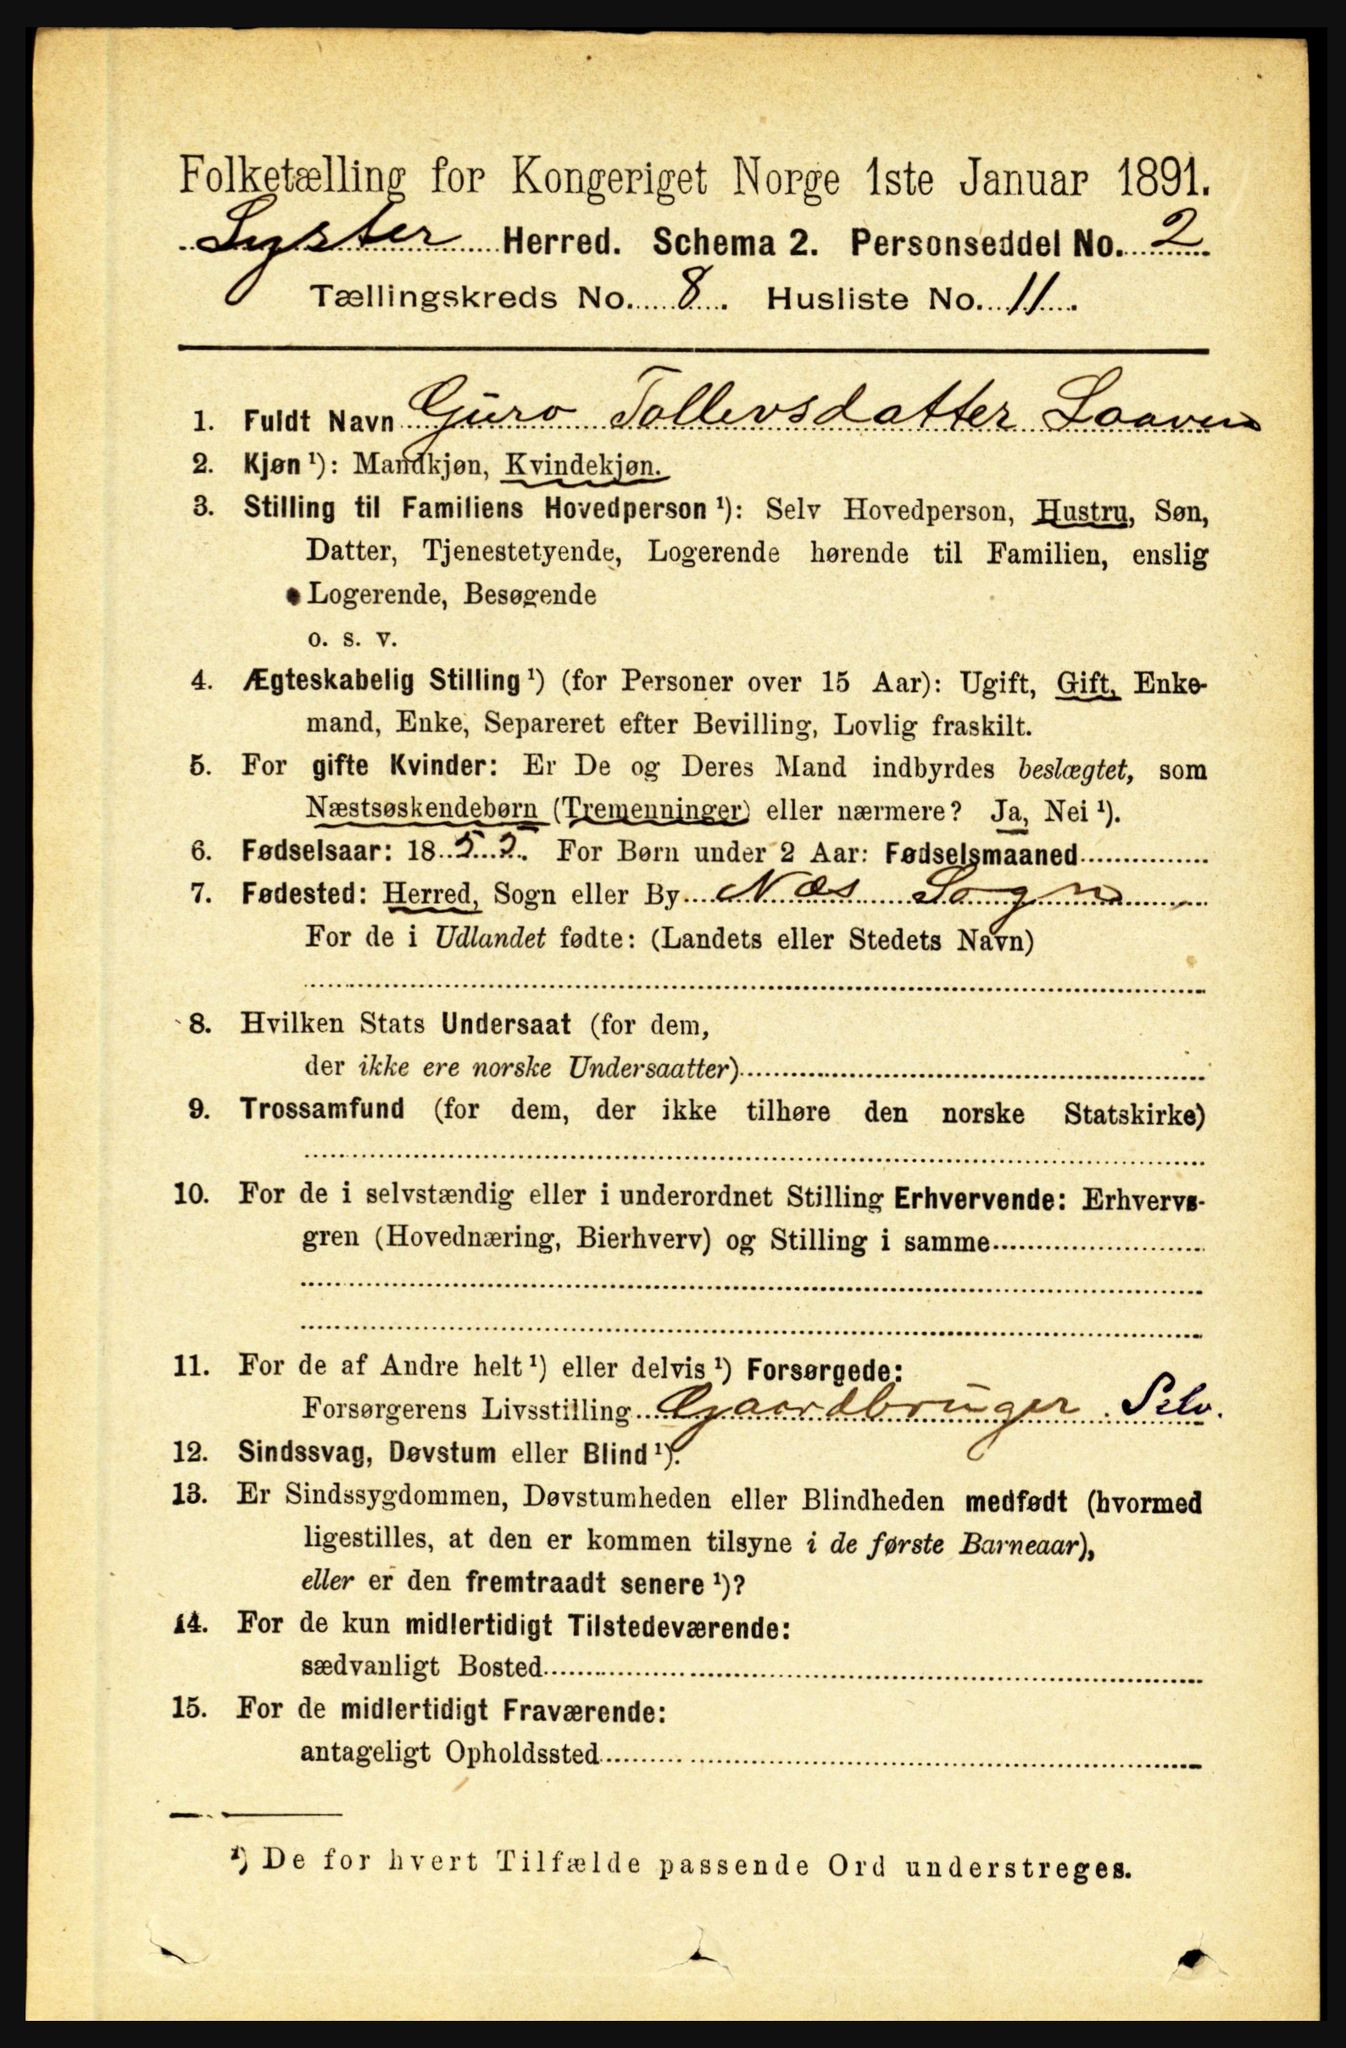 Folketælling for Kongeriget Norge 1ste Januar 1891.
Lyster Herred. Schema 2. Personseddel No. 2
Tællingskreds No. 8. Husliste No. 11.
1. Fuldt Navn Guro Tollevsdatter Laaven
2. Kjøn ¹): Mandkjøn, Kvindekjøn.
3. Stilling til Familiens Hovedperson ¹): Selv Hovedperson, Hustru, Søn,
Datter, Tjenestetyende, Logerende hørende til Familien, enslig
Logerende, Besøgende
o. s. v.
4. Ægteskabelig Stilling ¹) (for Personer over 15 Aar): Ugift, Gift, Enke-
mand, Enke, Separeret efter Bevilling, Lovlig fraskilt.
5. For gifte Kvinder: Er De og Deres Mand indbyrdes beslægtet, som
Næstsøskendebørn (Tremenninger) eller nærmere? Ja, Nei ¹).
6. Fødselsaar: 1855. For Børn under 2 Aar: Fødselsmaaned
7. Fødested: Herred, Sogn eller By Næs Sogn
For de i Udlandet fødte: (Landets eller Stedets Navn)
8. Hvilken Stats Undersaat (for dem,
der ikke ere norske Undersaatter)
9. Trossamfund (for dem, der ikke tilhøre den norske Statskirke)
10. For de i selvstændig eller i underordnet Stilling Erhvervende: Erhvervs-
gren (Hovednæring, Bierhverv) og Stilling i samme
11. For de af Andre helt ¹) eller delvis ¹) Forsørgede:
Forsørgerens Livsstilling Gaardbruger Selv.
12. Sindssvag, Døvstum eller Blind ¹).
13. Er Sindssygdommen, Døvstumheden eller Blindheden medfødt (hvormed
ligestilles, at den er kommen tilsyne i de første Barneaar),
eller er den fremtraadt senere ¹)?
14. For de kun midlertidigt Tilstedeværende:
sædvanligt Bosted
15. For de midlertidigt Fraværende:
antageligt Opholdssted
¹) De for hvert Tilfælde passende Ord understreges.